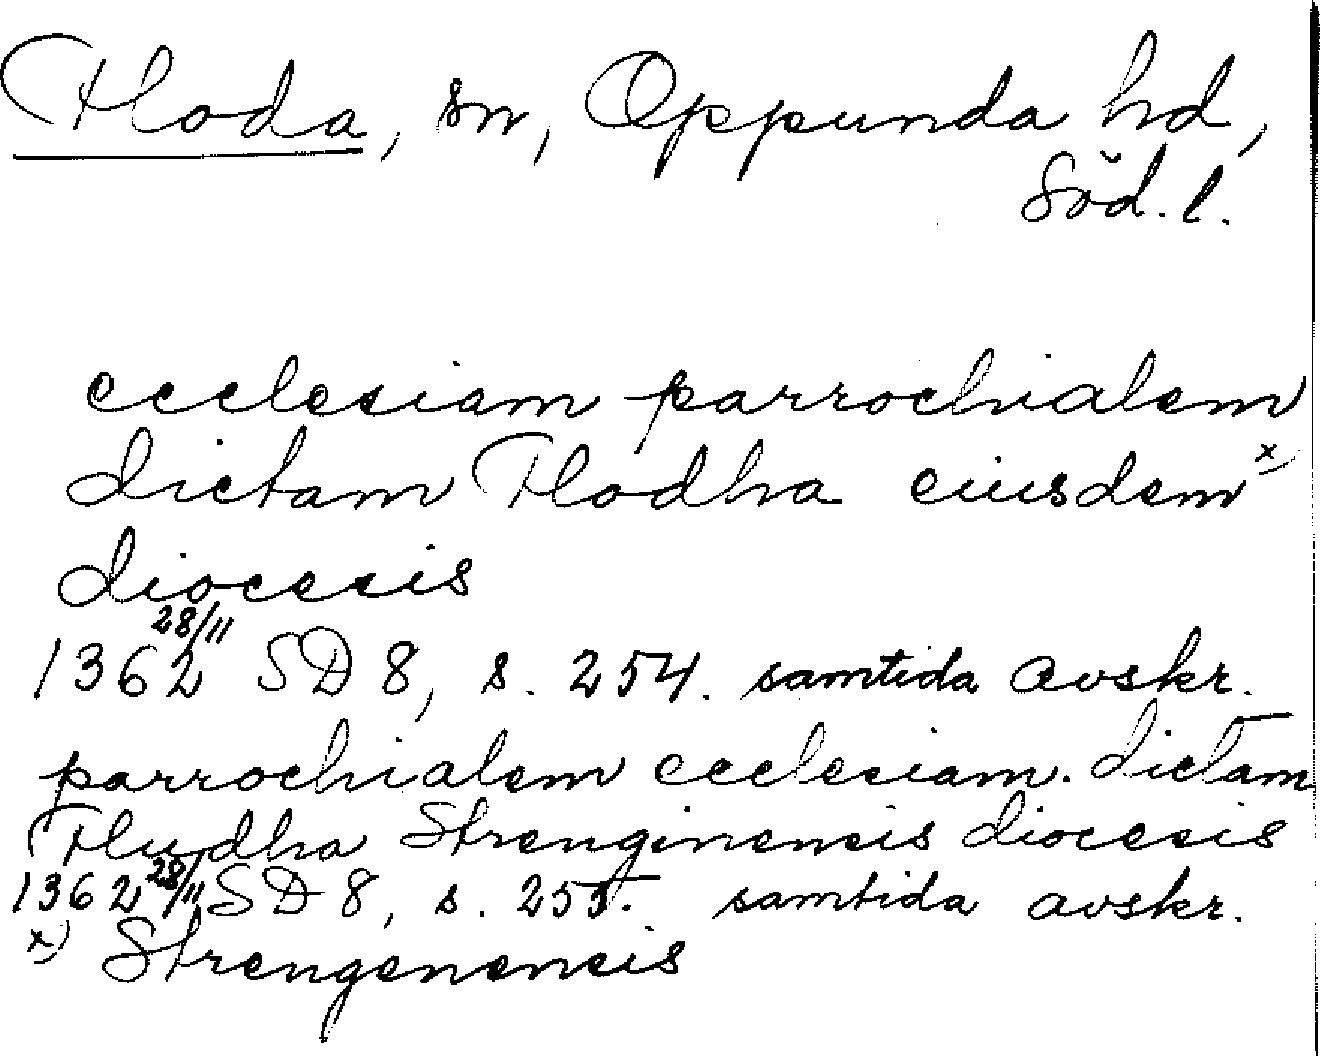 Floda, sn, Oppunda hd,
Söd. l.
ecclesiam parrochialem
dictam Flodha eiusdem x)
diocesis
1362 28/11 SD 8, s. 254. samtida avskr.
parrochialem ecclesiam. dictam
Fludha Strenginensis diocesis
1362 28/11 SD 8, s. 255. samtida avskr.
x) Strengenensis